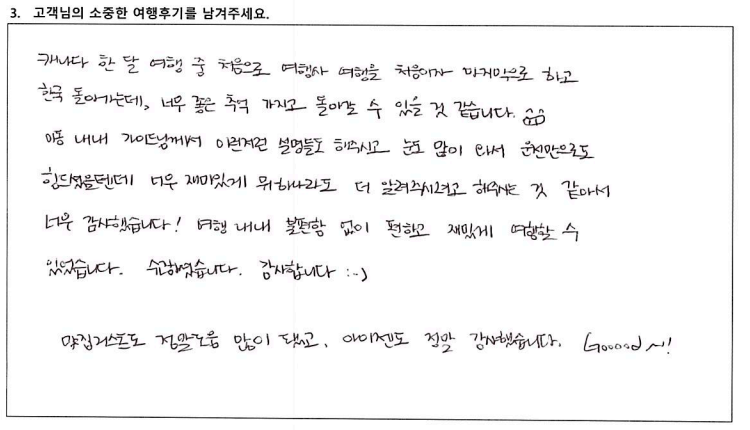 3. 고객님의 소중한 여행후기를 남겨주세요.
캐나다 한 달 여행 중 처음으로 여행사 여행을 처음이자 마지막으로 하고
한국 돌아가는데, 너무 좋은 추억 가지고 돌아갈 수 있을 것 같습니다.
이동 내내 가이드님께서 이런저런 설명들도 해주시고 눈도 많이 와서 운전만으로도
힘드셨을텐데 너무 재미있게 뭐하나라도 더 알려주시려고 해주시는 것 같아서
너무 감사했습니다! 여행 내내 불편함 없이 편하고 재밌게 여행할 수
있었습니다. 수고하셨습니다. 감사합니다 :-)
맛집리스트도 정말도움 많이 됐고, 아이젠도 정말 감사했습니다. Gooood~!